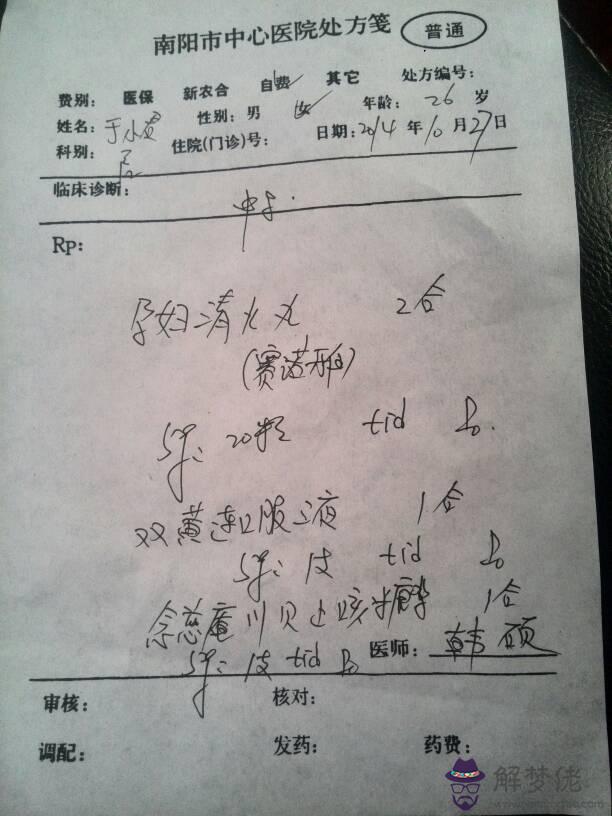 南阳市中心医院处方笺 普通
费别： 医保 新农合 自费✓ 其它 处方编号：
姓名： 于小 性别：男 女✓ 年龄： 26 岁
科别： 住院(门诊)号： 日期：2014 年 10 月 27 日
临床诊断：
Rp：
孕妇清火丸 2合
(赛诺雅)
20粒 tid po.
双黄连口服液 1合
1支 tid po
念慈庵川贝止咳糖浆 1合
1支 tid po 医师： 韩硕
审核： 核对：
调配： 发药： 药费：
解梦佬